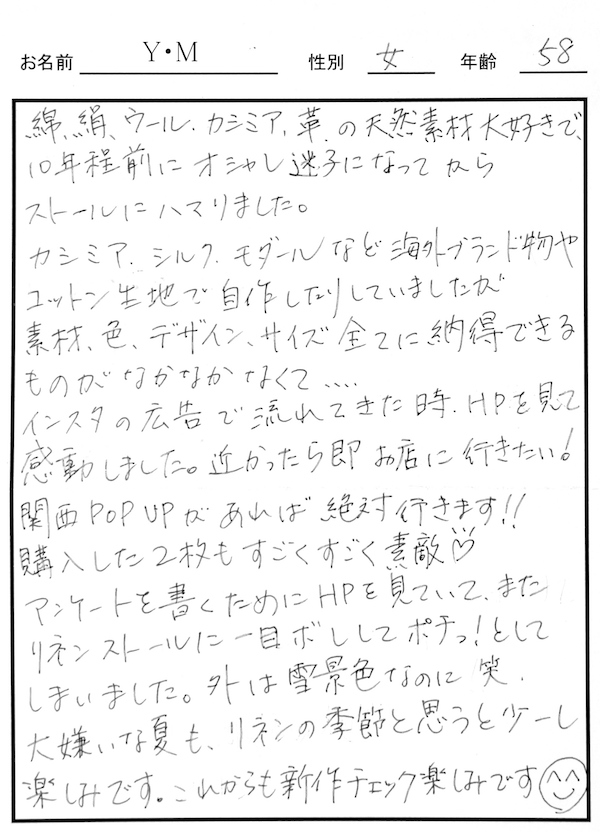 お名前 Y・M 性別 女 年齢 58
綿、絹、ウール、カシミア、革、の天然素材大好きで、
10年程前にオシャレ迷子になってから
ストールにハマりました。
カシミア、シルク、モダールなど海外ブランド物や
コットン生地で自作したりしていましたが
素材、色、デザイン、サイズ全てに納得できる
ものがなかなかなくて....
インスタの広告で流れてきた時、HPを見て
感動しました。近かったら即お店に行きたい!
関西POPUPがあれば絶対行きます!!
購入した2枚もすごくすごく素敵♡
アンケートを書くためにHPを見ていて、また
リネンストールに一目ボレしてポチっ!として
しまいました。外は雪景色なのに笑、
大嫌いな夏も、リネンの季節と思うと少ーし
楽しみです。これからも新作チェック楽しみです